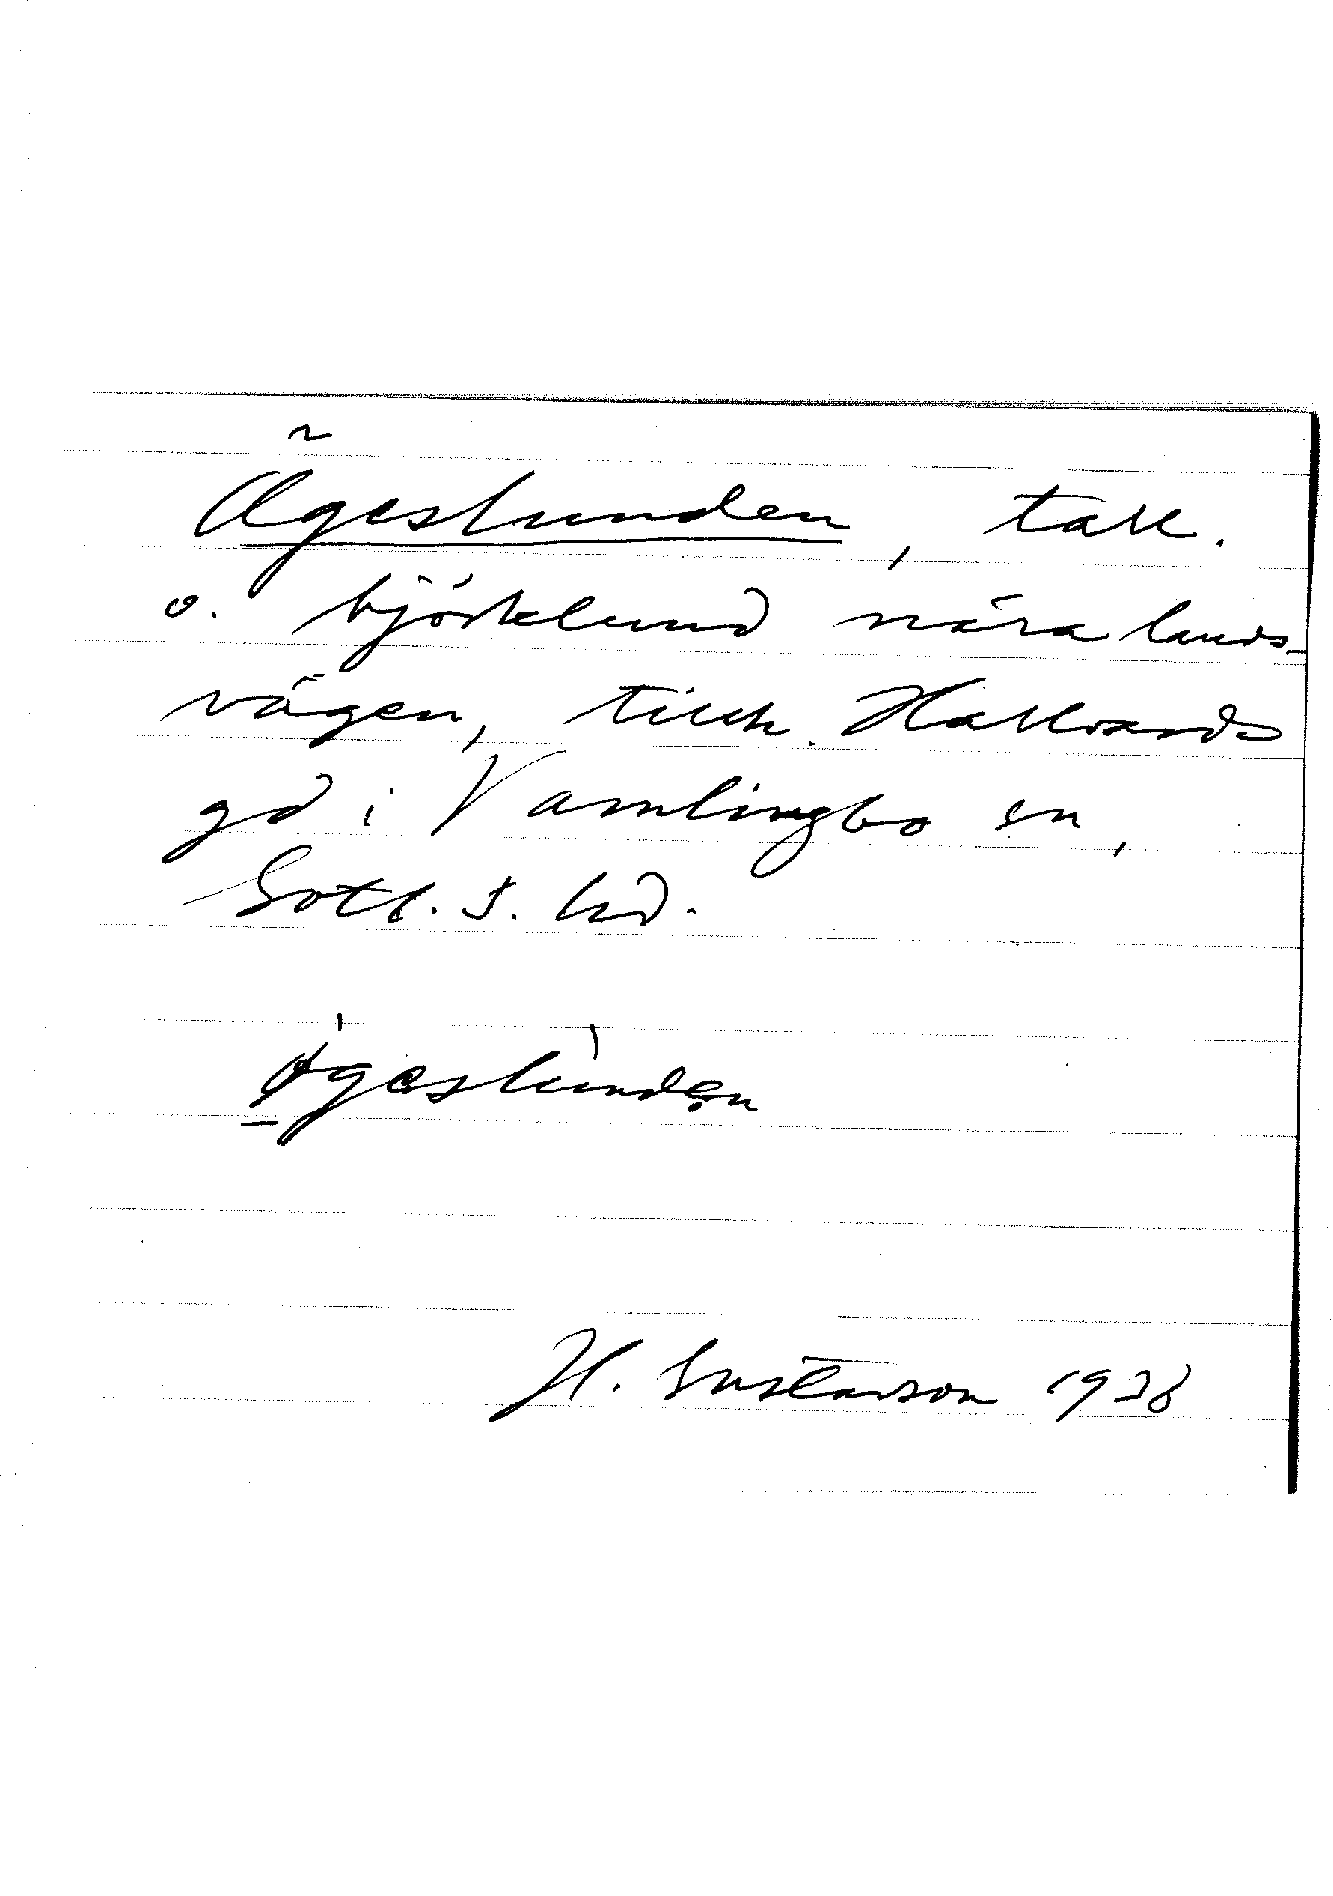 Ögeslunden, tall.
o. björklund nära lands-
vägen, tillh. Hallvards
gd i Vamlingbo sn,
Gotl. S. hd.
øgeslunden
H. Gustavson 1938